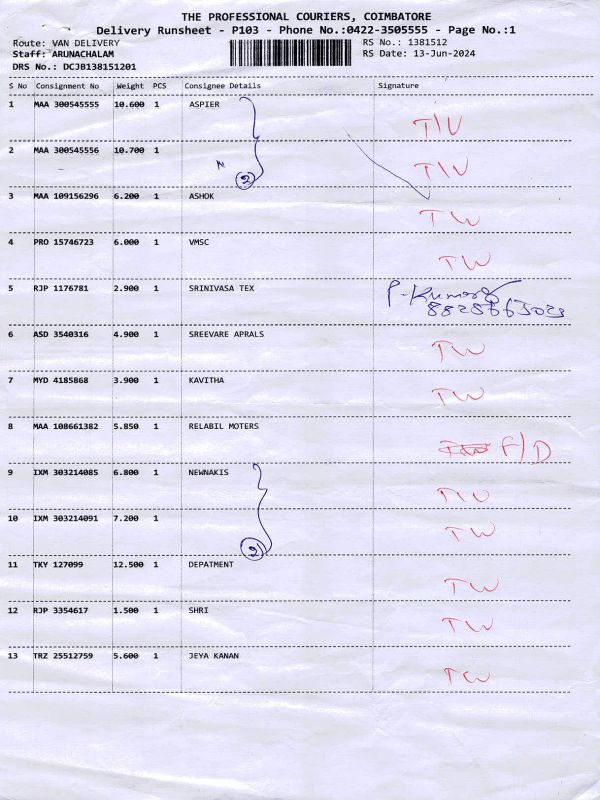 THE PROFESSIONAL COURIERS, COIMBATORE
Delivery Runsheet - P103 - Phone No.:0422-3505555 - Page No.:1
Route: VAN DELIVERY RS No.: 1381512
Staff: ARUNACHALAM RS Date: 13-Jun-2024
DRS No.: DCJB138151201
S No Consignment No Weight PCS Consignee Details Signature
1 MAA 300545555 10.600 1 ASPIER
TW
2 MAA 300545556 10.700 1
N TW
2
3 MAA 109156296 6.200 1 ASHOK
TW
4 PRO 15746723 6.000 1 VMSC
TW
5 RJP 1176781 2.900 1 SRINIVASA TEX P. Kumar
6 ASD 3540316 4.900 1 SREEVARE APRALS
TW
7 MYD 4185868 3.900 1 KAVITHA
TW
8 MAA 108661382 5.850 1 RELABIL MOTERS
F/D
9 IXM 303214085 6.800 1 NEWNAKIS
TW
10 IXM 303214091 7.200 1
TW
2
11 TKY 127099 12.500 1 DEPATMENT
TW
12 RJP 3354617 1.500 1 SHRI
TW
13 TRZ 25512759 5.600 1 JEYA KANAN
TW